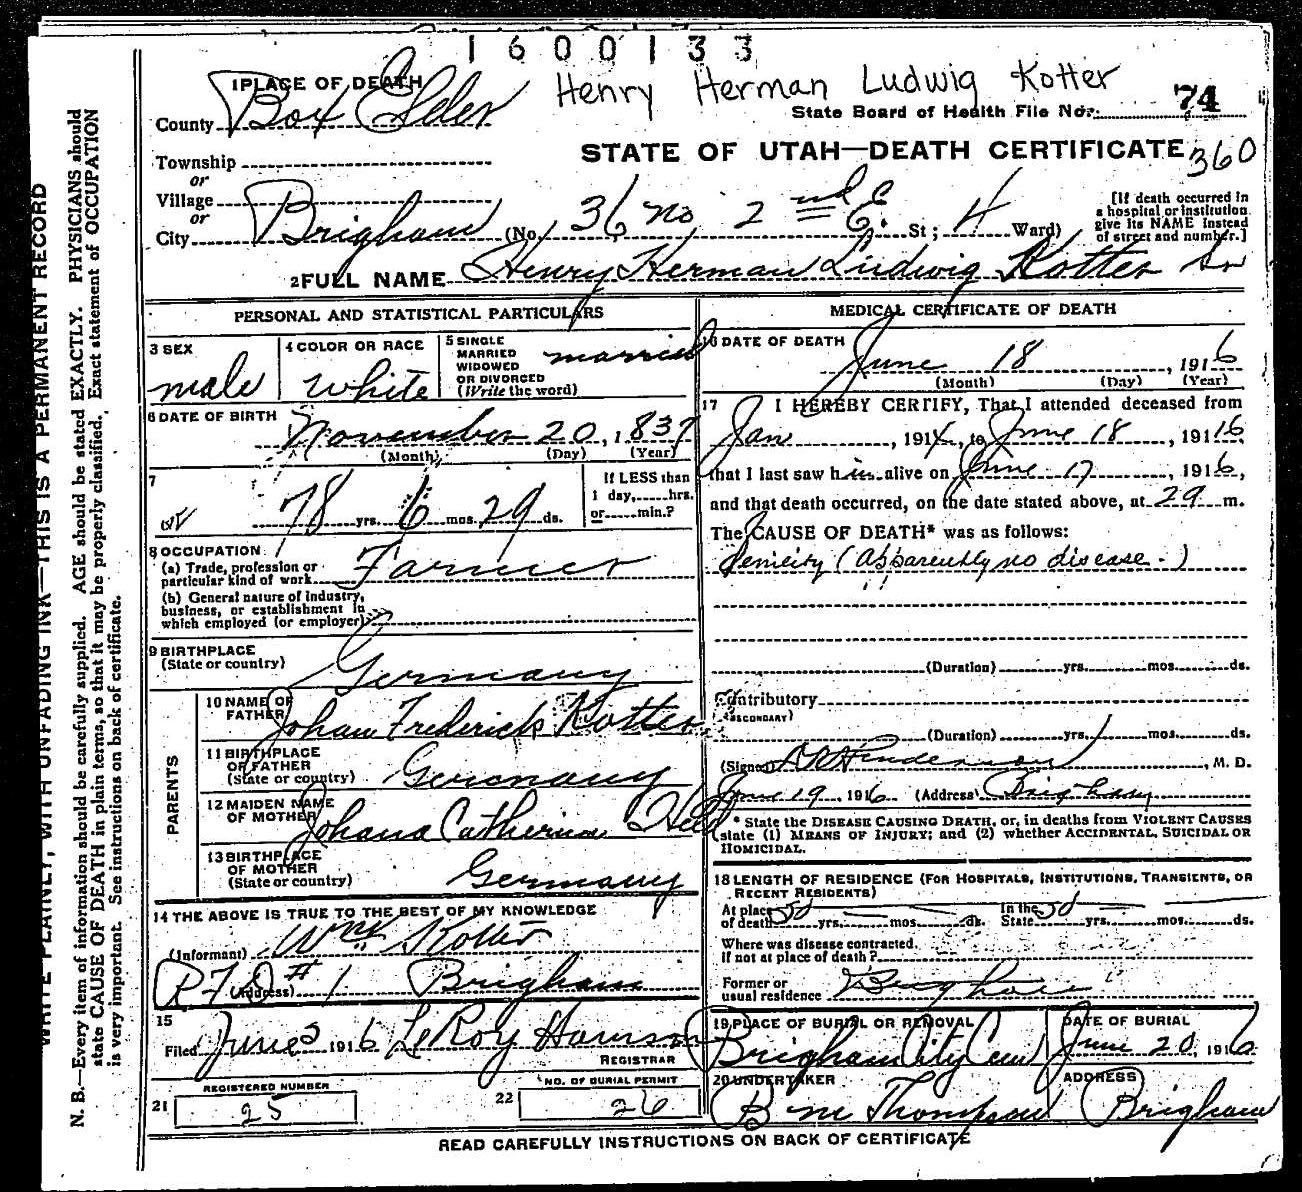 1600133
Henry Herman Ludwig Kotter
1 PLACE OF DEATH
County Box Elder
State Board of Health File No. 74
Township
or
STATE OF UTAH—DEATH CERTIFICATE 360
Village
or
City Brigham (No. 36 no 2 nd E. St; 4 Ward)
[If death occurred in
a hospital or institution
give its NAME instead
of street and number.]
2 FULL NAME Henry Herman Ludwig Kotter Sr
PERSONAL AND STATISTICAL PARTICULARS
3 SEX
male
4 COLOR OR RACE
White
5 SINGLE
MARRIED
WIDOWED
OR DIVORCED
(Write the word)
married
6 DATE OF BIRTH
November 20, 1837
(Month) (Day) (Year)
7
78 yrs. 6 mos. 29 ds.
If LESS than
1 day, hrs.
or min.?
8 OCCUPATION
(a) Trade, profession or
particular kind of work Farmer
(b) General nature of industry,
business, or establishment in
which employed (or employer)
9 BIRTHPLACE
(State or country)
Germany
PARENTS
10 NAME OF
FATHER
Johan Frederick Kotter
11 BIRTHPLACE
OF FATHER
(State or country)
Germany
12 MAIDEN NAME
OF MOTHER
Johana Catherina
13 BIRTHPLACE
OF MOTHER
(State or country)
Germany
14 THE ABOVE IS TRUE TO THE BEST OF MY KNOWLEDGE
(Informant) Wm Kotter
(Address) R F D # 1 Brigham
15
Filed June 1916 LeRoy
REGISTRAR
REGISTERED NUMBER
21 25
NO. OF BURIAL PERMIT
22 26
MEDICAL CERTIFICATE OF DEATH
16 DATE OF DEATH
June 18, 1916
(Month) (Day) (Year)
17 I HEREBY CERTIFY, That I attended deceased from
Jan, 1914, to June 18, 1916,
that I last saw him alive on June 17, 1916,
and that death occurred, on the date stated above, at 29 m.
The CAUSE OF DEATH* was as follows:
Senicity (Apparently no disease.)
(Duration) yrs. mos. ds.
Contributory
(SECONDARY)
(Duration) yrs. mos. ds.
(Signed), M. D.
June 19, 1916 (Address) Brigham
* State the DISEASE CAUSING DEATH, or, in deaths from VIOLENT CAUSES
state (1) MEANS OF INJURY; and (2) whether ACCIDENTAL, SUICIDAL OR
HOMICIDAL.
18 LENGTH OF RESIDENCE (FOR HOSPITALS, INSTITUTIONS, TRANSIENTS, OR
RECENT RESIDENTS)
At place
of death 50 yrs. mos. ds.
In the
State 50 yrs. mos. ds.
Where was disease contracted.
If not at place of death?
Former or
usual residence Brigham
19 PLACE OF BURIAL OR REMOVAL
Brigham City Cem
DATE OF BURIAL
June 20, 1916
20 UNDERTAKER
B M Thompson
ADDRESS
Brigham
READ CAREFULLY INSTRUCTIONS ON BACK OF CERTIFICATE
WRITE PLAINLY, WITH UNFADING INK—THIS IS A PERMANENT RECORD
N. B.—Every item of information should be carefully supplied. AGE should be stated EXACTLY. PHYSICIANS should
state CAUSE OF DEATH in plain terms, so that it may be properly classified. Exact statement of OCCUPATION
is very important. See instructions on back of certificate.